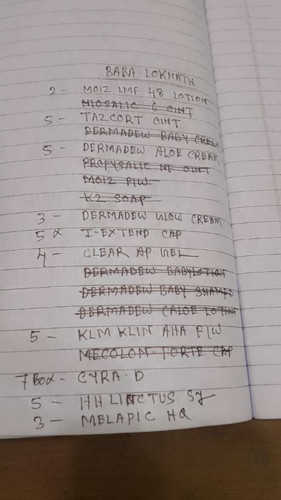 BABA LOKNATH
2 - MOIZ LMF 48 LOTION
MIOSALIC 6 OINT
5 - TAZCORT OINT
DERMADEW BABY CREAM
5 - DERMADEW ALOE CREAM
PROPYSALIC NF OINT
MOIZ F/W
K2 SOAP
3 - DERMADEW GLOW CREAM
5 x I-EXTEND CAP
4 - CLEAR AP GEL
DERMADEW BABY LOTION
DERMADEW BABY SHAMPO
DERMADEW CALOE LOTION
5 - KLM KLIN AHA F/W
MECOLON FORTE CAP
7 BOX - CYRA-D
5 - HH LINCTUS SY
3 - MELAPIC HQ